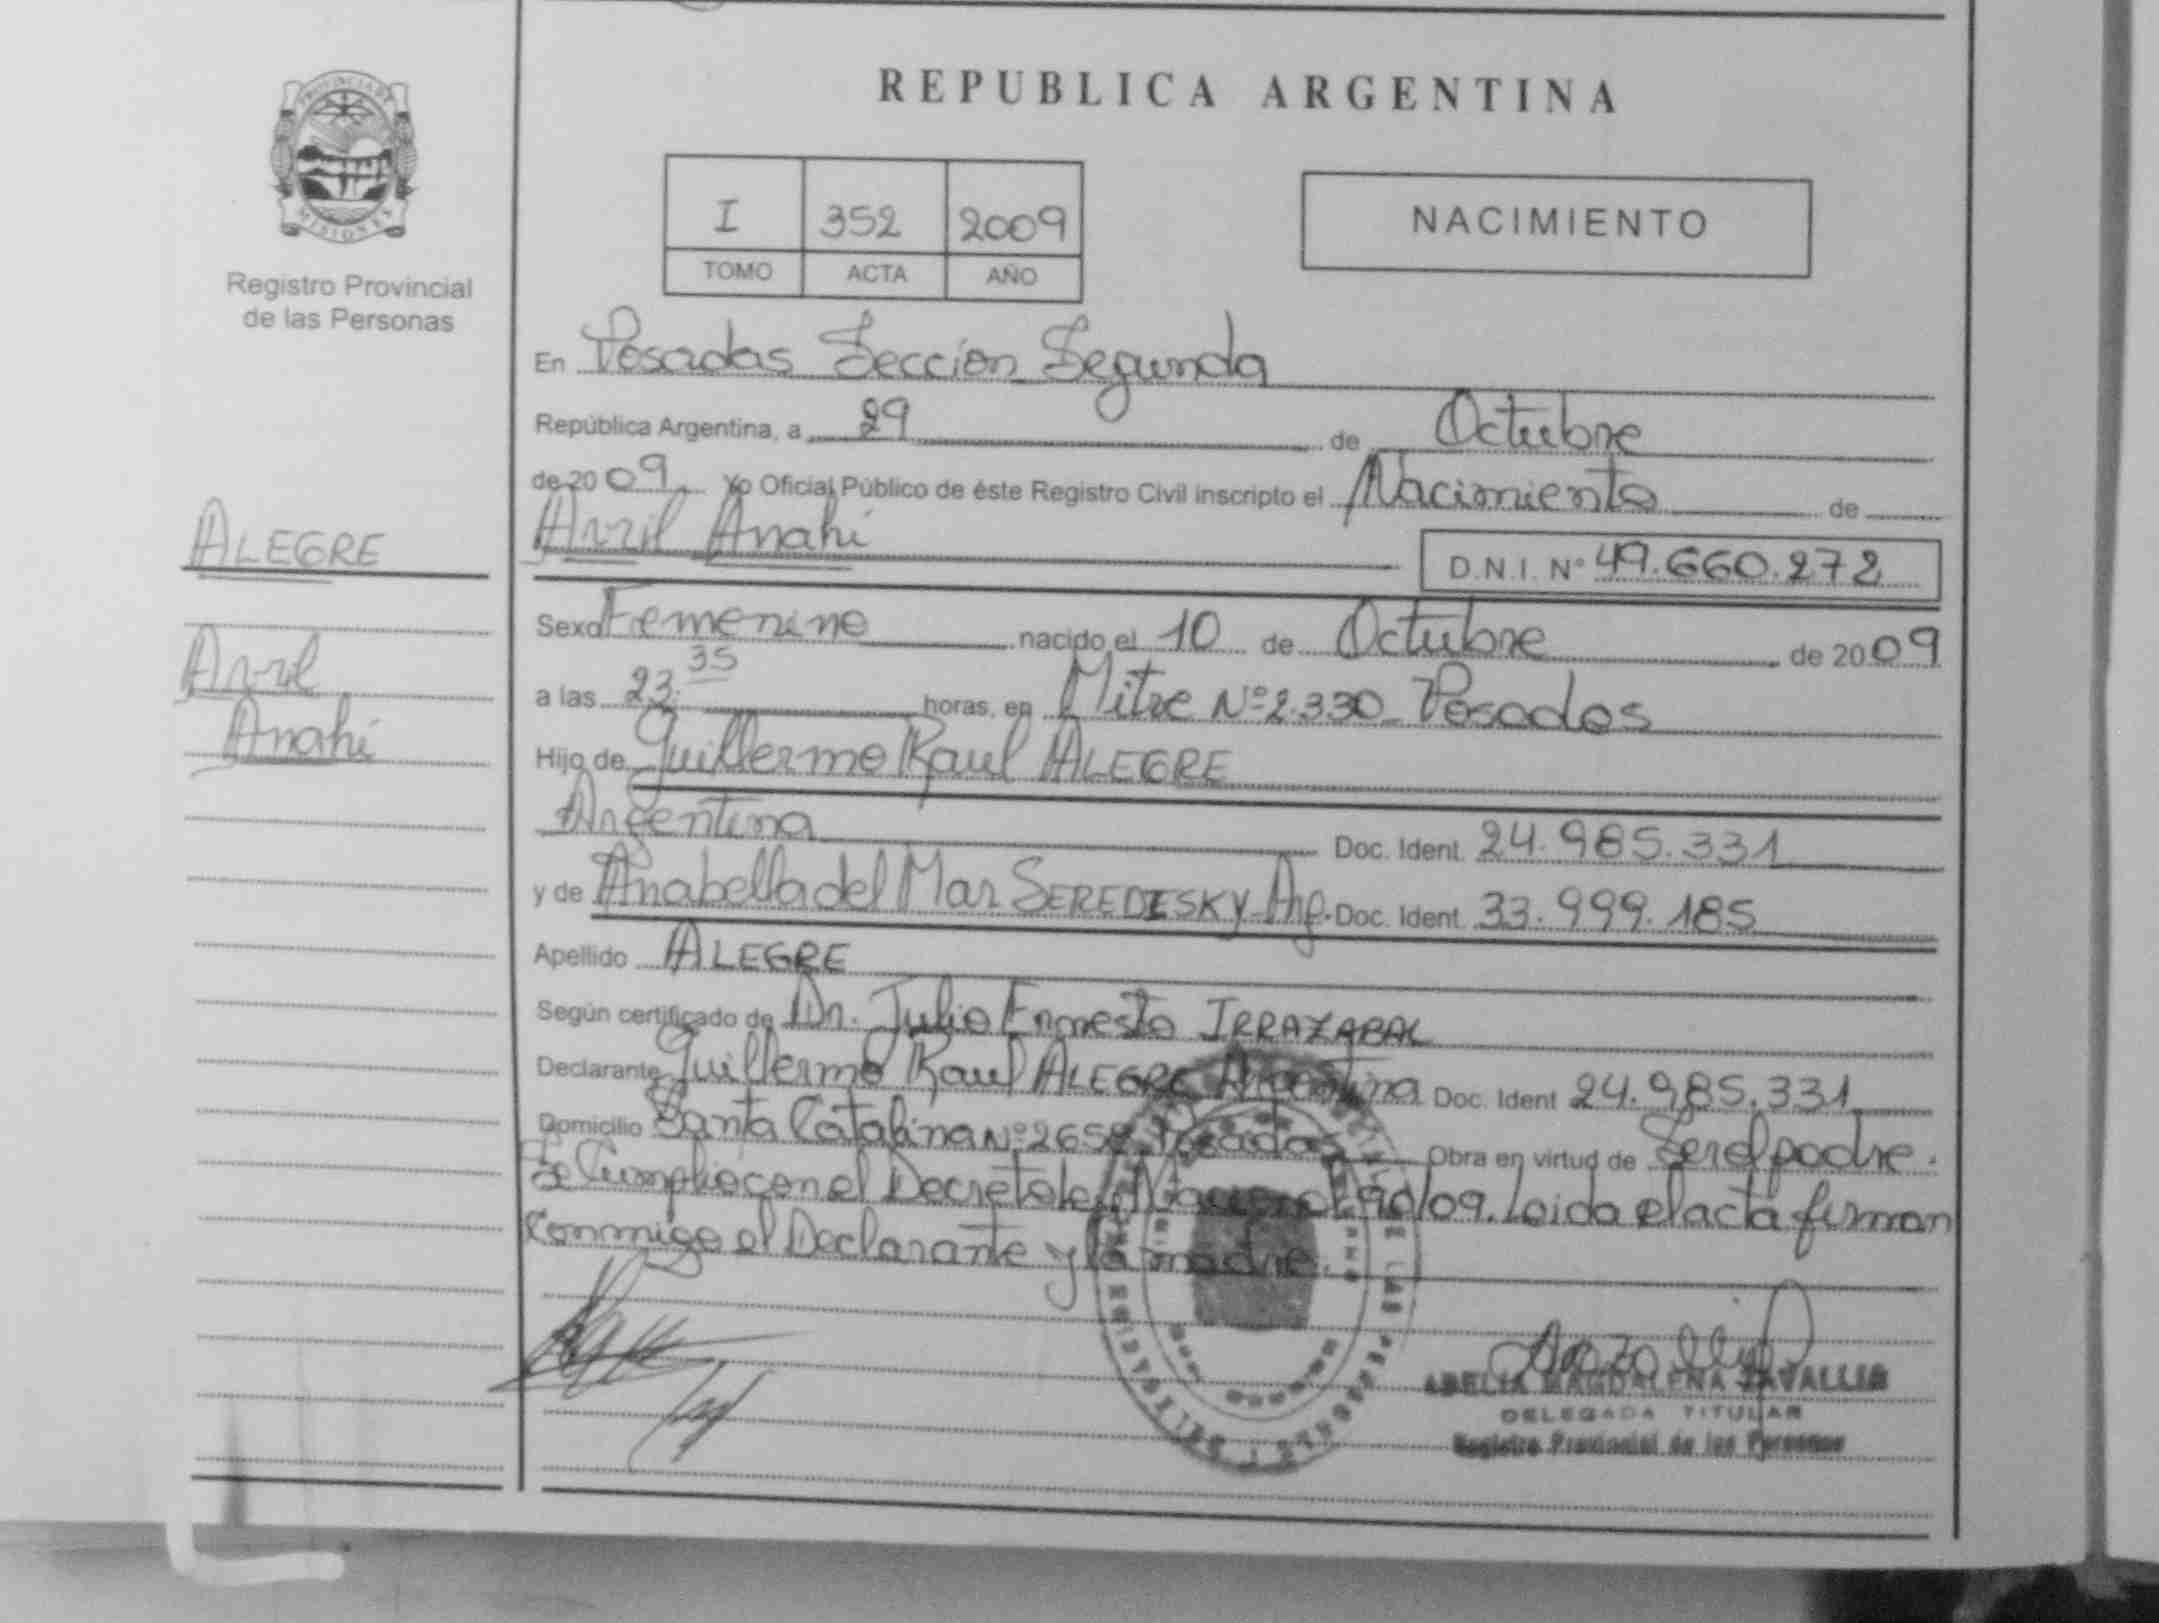 REPUBLICA ARGENTINA
PROVINCIA DE
MISIONES
Registro Provincial
de las Personas
I 352 2009
TOMO ACTA AÑO
NACIMIENTO
En Posadas Sección Segunda
República Argentina, a 29 de Octubre
de 2009 Yo Oficial Público de éste Registro Civil inscripto el Nacimiento de
ALEGRE
Avril Anahí
D.N.I. Nº 49.660.272
Sexo Femenino nacido el 10 de Octubre de 2009
Avril
Anahí
a las 23.35 horas, en Mitre Nº 2.330 Posadas
Hijo de Guillermo Raul ALEGRE
Argentina Doc. Ident. 24.985.331
y de Anabella del Mar SEREDESKY Arg. Doc. Ident. 33.999.185
Apellido ALEGRE
Según certificado de Dr. Julio Ernesto IRRAZABAL
Declarante Guillermo Raul ALEGRE Argentina Doc. Ident 24.985.331
Domicilio Santa Catalina Nº 265 Posadas Obra en virtud de Ser el padre.
Se Cumplio con el Decreto 90/09. Leida el acta firman
Conmigo el Declarante y la madre.
MAGDALENA
DELEGADA TITULAR
Registro Provincial de las Personas